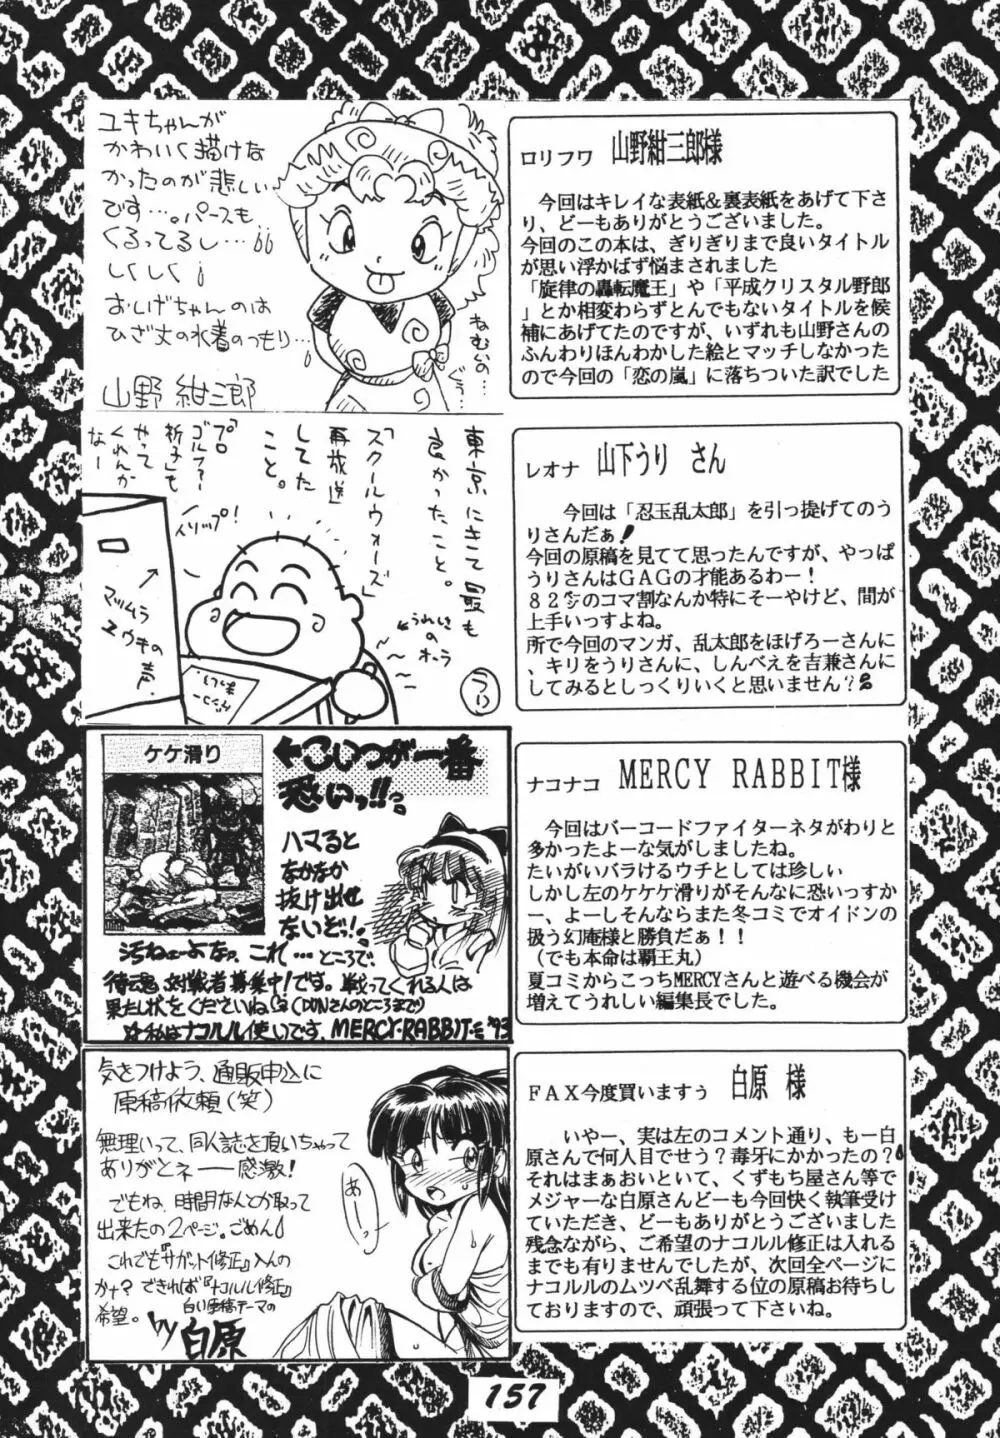 ユキちゃんが
かわいく描けな
かったのが悲しい
です…。パースも
くるってるし…
しくしく
おしげちゃんのは
ひざ丈の水着のつもり…
山野 紺三郎
ねむいの…
ぐぅ…
ロリフワ 山野紺三郎様
今回はキレイな表紙&裏表紙をあげて下さ
り、どーもありがとうございました。
今回のこの本は、ぎりぎりまで良いタイトル
が思い浮かばず悩まされました
「旋律の轟転魔王」や「平成クリスタル野郎
」とか相変わらずとんでもないタイトルを候
補にあげてたのですが、いずれも山野さんの
ふんわりほんわかした絵とマッチしなかった
ので今回の「恋の嵐」に落ちついた訳でした
東京にきて最も
良かったこと。
「スクールウォーズ」
再放送
してた
こと。
プロ
ゴルファー
祈子も
やって
くれんか
なー
イソップ!
マツムラ
ユウキの声
うれしさ
の
オーラ
うり
レオナ 山下うり さん
今回は「忍玉乱太郎」を引っ提げてのう
りさんだぁ!
今回の原稿を見てて思ったんですが、やっぱ
うりさんはGAGの才能あるわー!
82㌻のコマ割なんか特にそーやけど、間が
上手いっすよね。
所で今回のマンガ、乱太郎をほげろーさんに
、キリをうりさんに、しんべえを吉兼さんに
してみるとしっくりいくと思いません?
ケケ滑り
←こいつが一番
恐いっ!!
ハマると
なかなか
抜け出せ
ないぞっ!
汚ねェーよなっ、これ…ところで、
侍魂対戦者募集中!です。戦ってくれる人は
果たし状をくださいね(DONさんのところまで)
私はナコルル使いです。MERCY-RABBIT- '93
ナコナコ MERCY RABBIT様
今回はバーコードファイターネタがわりと
多かったよーな気がしましたね。
たいがいバラけるウチとしては珍しい
しかし左のケケケ滑りがそんなに恐いっすか
ー、よーしそんならまた冬コミでオイドンの
扱う幻庵様と勝負だぁ!!
(でも本命は覇王丸)
夏コミからこっちMERCYさんと遊べる機会が
増えてうれしい編集長でした。
気をつけよう、通販申込に
原稿依頼(笑)
無理いって、同人誌を頂いちゃって
ありがとネー 感激!
でもね、時間なんとか取って
出来たの2ページ。ごめん
これでも『サガット修正』入んの
かナ? できれば『ナコルル修正』
希望。
白い原稿テーマの
by 白原
あ〜っ
FAX今度買いますぅ 白原 様
いやー、実は左のコメント通り、もー白
原さんで何人目でせう?毒牙にかかったの?
それはまぁおいといて、くずもち屋さん等で
メジャーな白原さんどーも今回快く執筆受け
ていただき、どーもありがとうございました
残念ながら、ご希望のナコルル修正は入れる
までも有りませんでしたが、次回全ページに
ナコルルのムツベ乱舞する位の原稿お待ちし
ておりますので、頑張って下さいね。
157